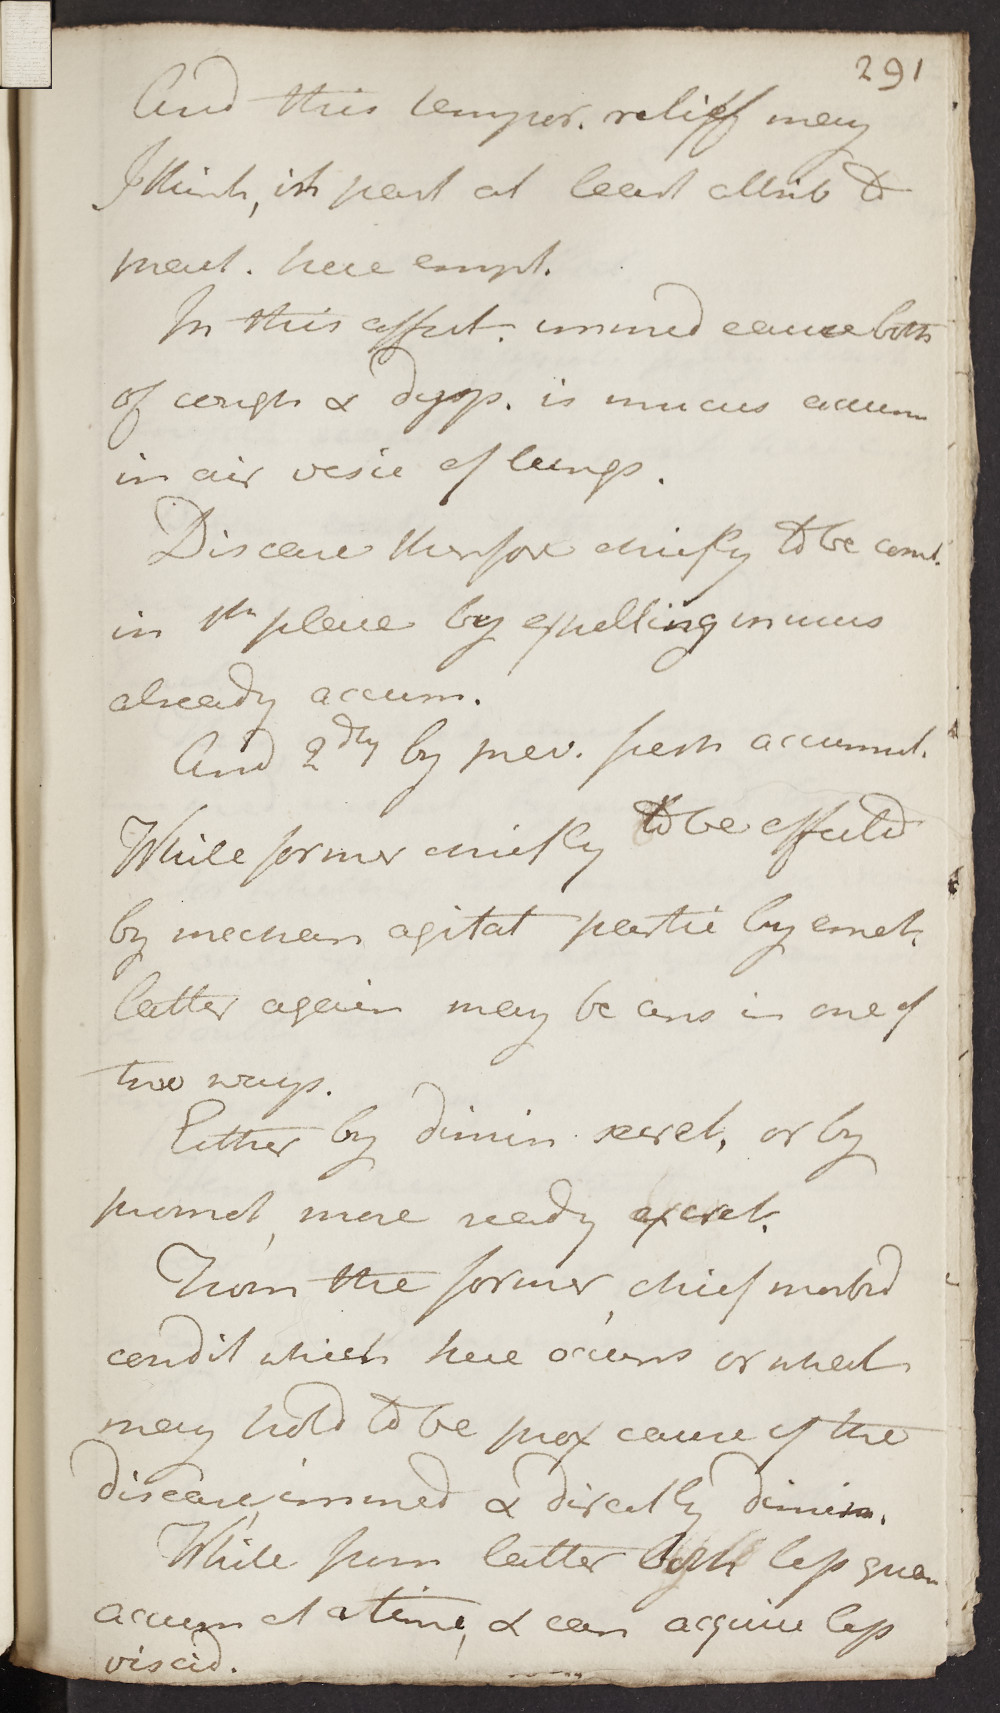 291
And this tempor. relieff may
I think, in part at least attrib to
meat. here empl.
In this affect. immed cause both
of cough & dysp. is mucus accum
in air vesic of lungs.
Disease therfore chiefly to be comb.
in 1st place by expelling mucus
already accum.
And 2dly by prev. fresh accumul.
While former chiefly to be effected
by mechan agitat partic by emet.
latter again may be ans in one of
two ways.
Either by dimin secret, or by
promot, more ready excret.
From the former, chief morbid
condit which here occurs or what
may hold to be prox cause of the
disease, immed & directly dimin.
While from latter both less quan
accum at a time, & can acquire less
viscid.